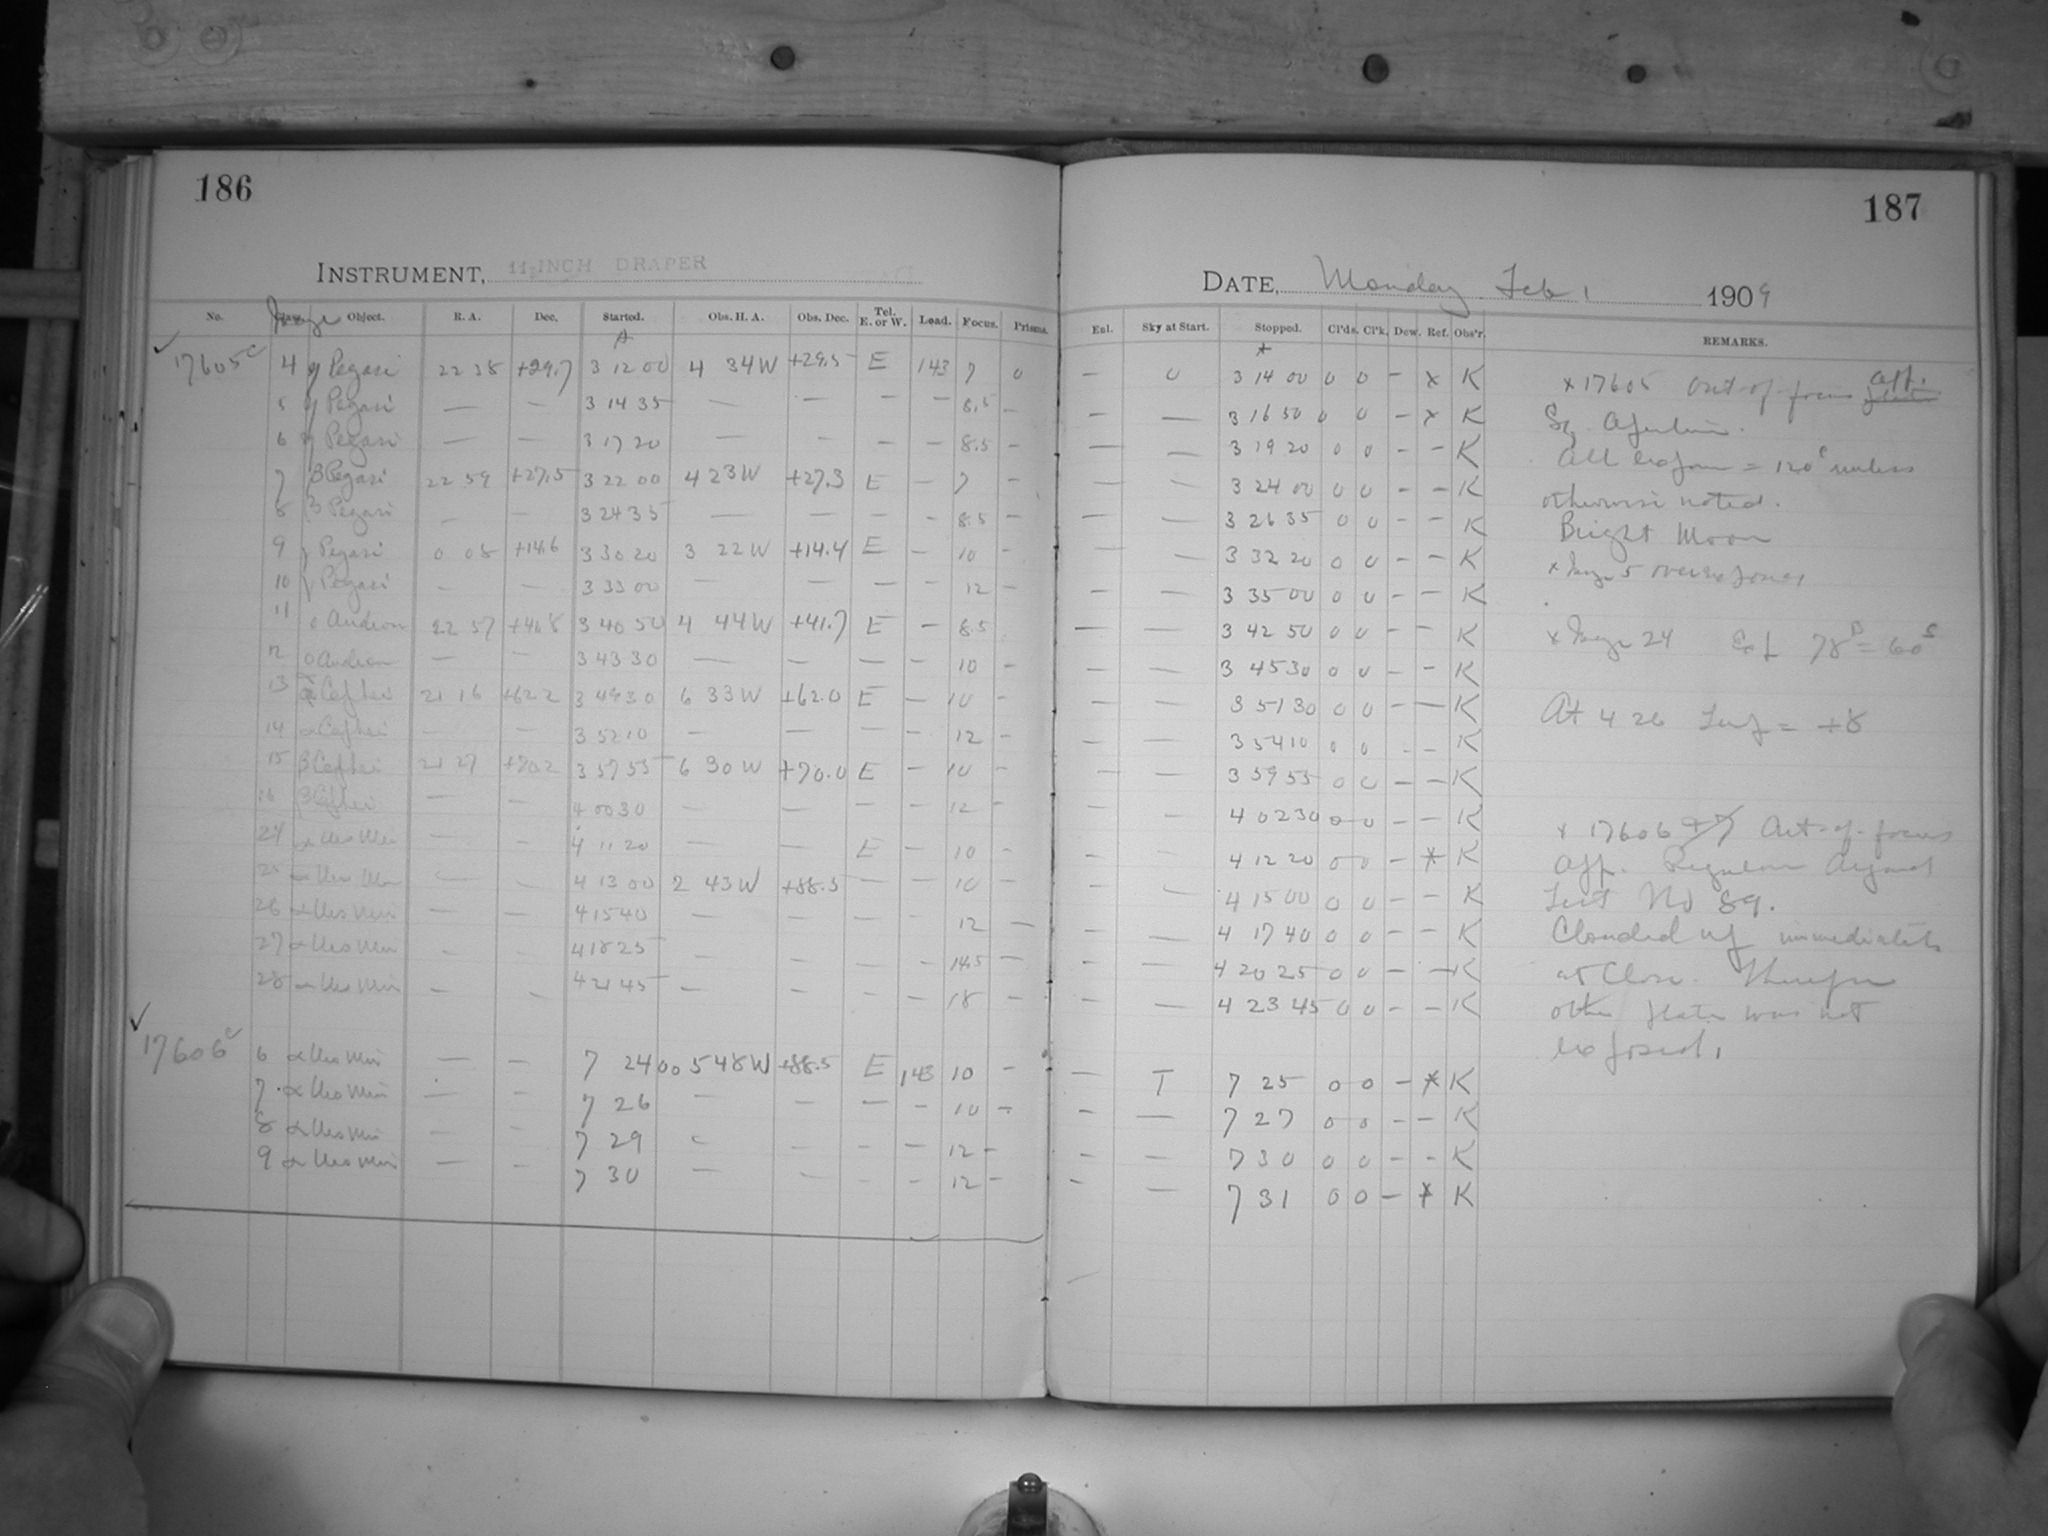 186
187
INSTRUMENT, 11-INCH DRAPER
DATE, Monday Feb 1 1909
No. Image Object. R. A. Dec. Started. Obs. H. A. Obs. Dec. Tel. E. or W. Load. Focus. Prisms. Enl. Sky at Start. Stopped. Cl'ds. Cl'k. Dew. Ref. Obs'r. REMARKS.
17605c 4 η Pegasi 22 38 +29.7 3 12 00 4 34W +29.5 E 143 7 0 — 0 3 14 00 0 0 - x K
5 η Pegasi — — 3 14 35 — — - - 8.5 - — — 3 16 50 0 0 - x K
6 η Pegasi — — 3 17 20 — - - - 8.5 - — — 3 19 20 0 0 - - K
7 β Pegasi 22 59 +27.5 3 22 00 4 23W +27.3 E - 7 - — — 3 24 00 0 0 - - K
8 β Pegasi - — 3 24 35 — — - - 8.5 - — — 3 26 35 0 0 - - K
9 γ Pegasi 0 08 +14.6 3 30 20 3 22W +14.4 E - 10 - — — 3 32 20 0 0 - - K
10 γ Pegasi - — 3 33 00 — — - - 12 - — — 3 35 00 0 0 - - K
11 o Androm 22 57 3 40 50 4 44W +41.7 E - 8.5 — — 3 42 50 0 0 - - K
12 o Androm — - 3 43 30 — — - - 10 - — — 3 45 30 0 0 - - K
13 α Cephei 21 16 +62.2 3 49 30 6 33W +62.0 E - 10 - — — 3 51 30 0 0 - — K
14 α Cephei — - 3 52 10 — - - - 12 - — — 3 54 10 0 0 - - K
15 β Cephei 21 27 +70.2 3 57 55 6 30W +70.0 E - 10 - — — 3 59 55 0 0 - - K
16 β Cephei — - 4 00 30 — — - - 12 - — — 4 02 30 0 0 - - K
24 α Urs Min — - 4 11 20 — — E - 10 - - - 4 12 20 0 0 - x K
25 α Urs Min — - 4 13 00 2 43W +88.5 — - 10 - - - 4 15 00 0 0 - - K
26 α Urs Min — — 4 15 40 — - - - 12 — - — 4 17 40 0 0 - - K
27 α Urs Min - - 4 18 25 - — - - 14.5 — - — 4 20 25 0 0 - — K
28 α Urs Min - - 4 21 45 — - - - 18 - - — 4 23 45 0 0 - - K
17606c 6 α Urs Min — - 7 24 00 5 48W +88.5 E 143 10 - — T 7 25 0 0 - x K
7 α Urs Min — - 7 26 - - — - 10 - - — 7 27 0 0 - - K
8 α Urs Min — - 7 29 - - - 12 - - — 7 30 0 0 - - K
9 α Urs Min — - 7 30 — - - - 12 - - — 7 31 0 0 - x K
x 17605 Out of focus app.
Sq. Aperture.
All expos = 120s unless
otherwise noted.
Bright Moon
x Image 5 overexposed
x Image 24 Exp 78 = 60s
At 4 26 Temp = +8
x 17606 Out-of-focus
app. Regular
Test No 89.
Clouded up immediately
at close. Therefore
other plate was not
exposed.